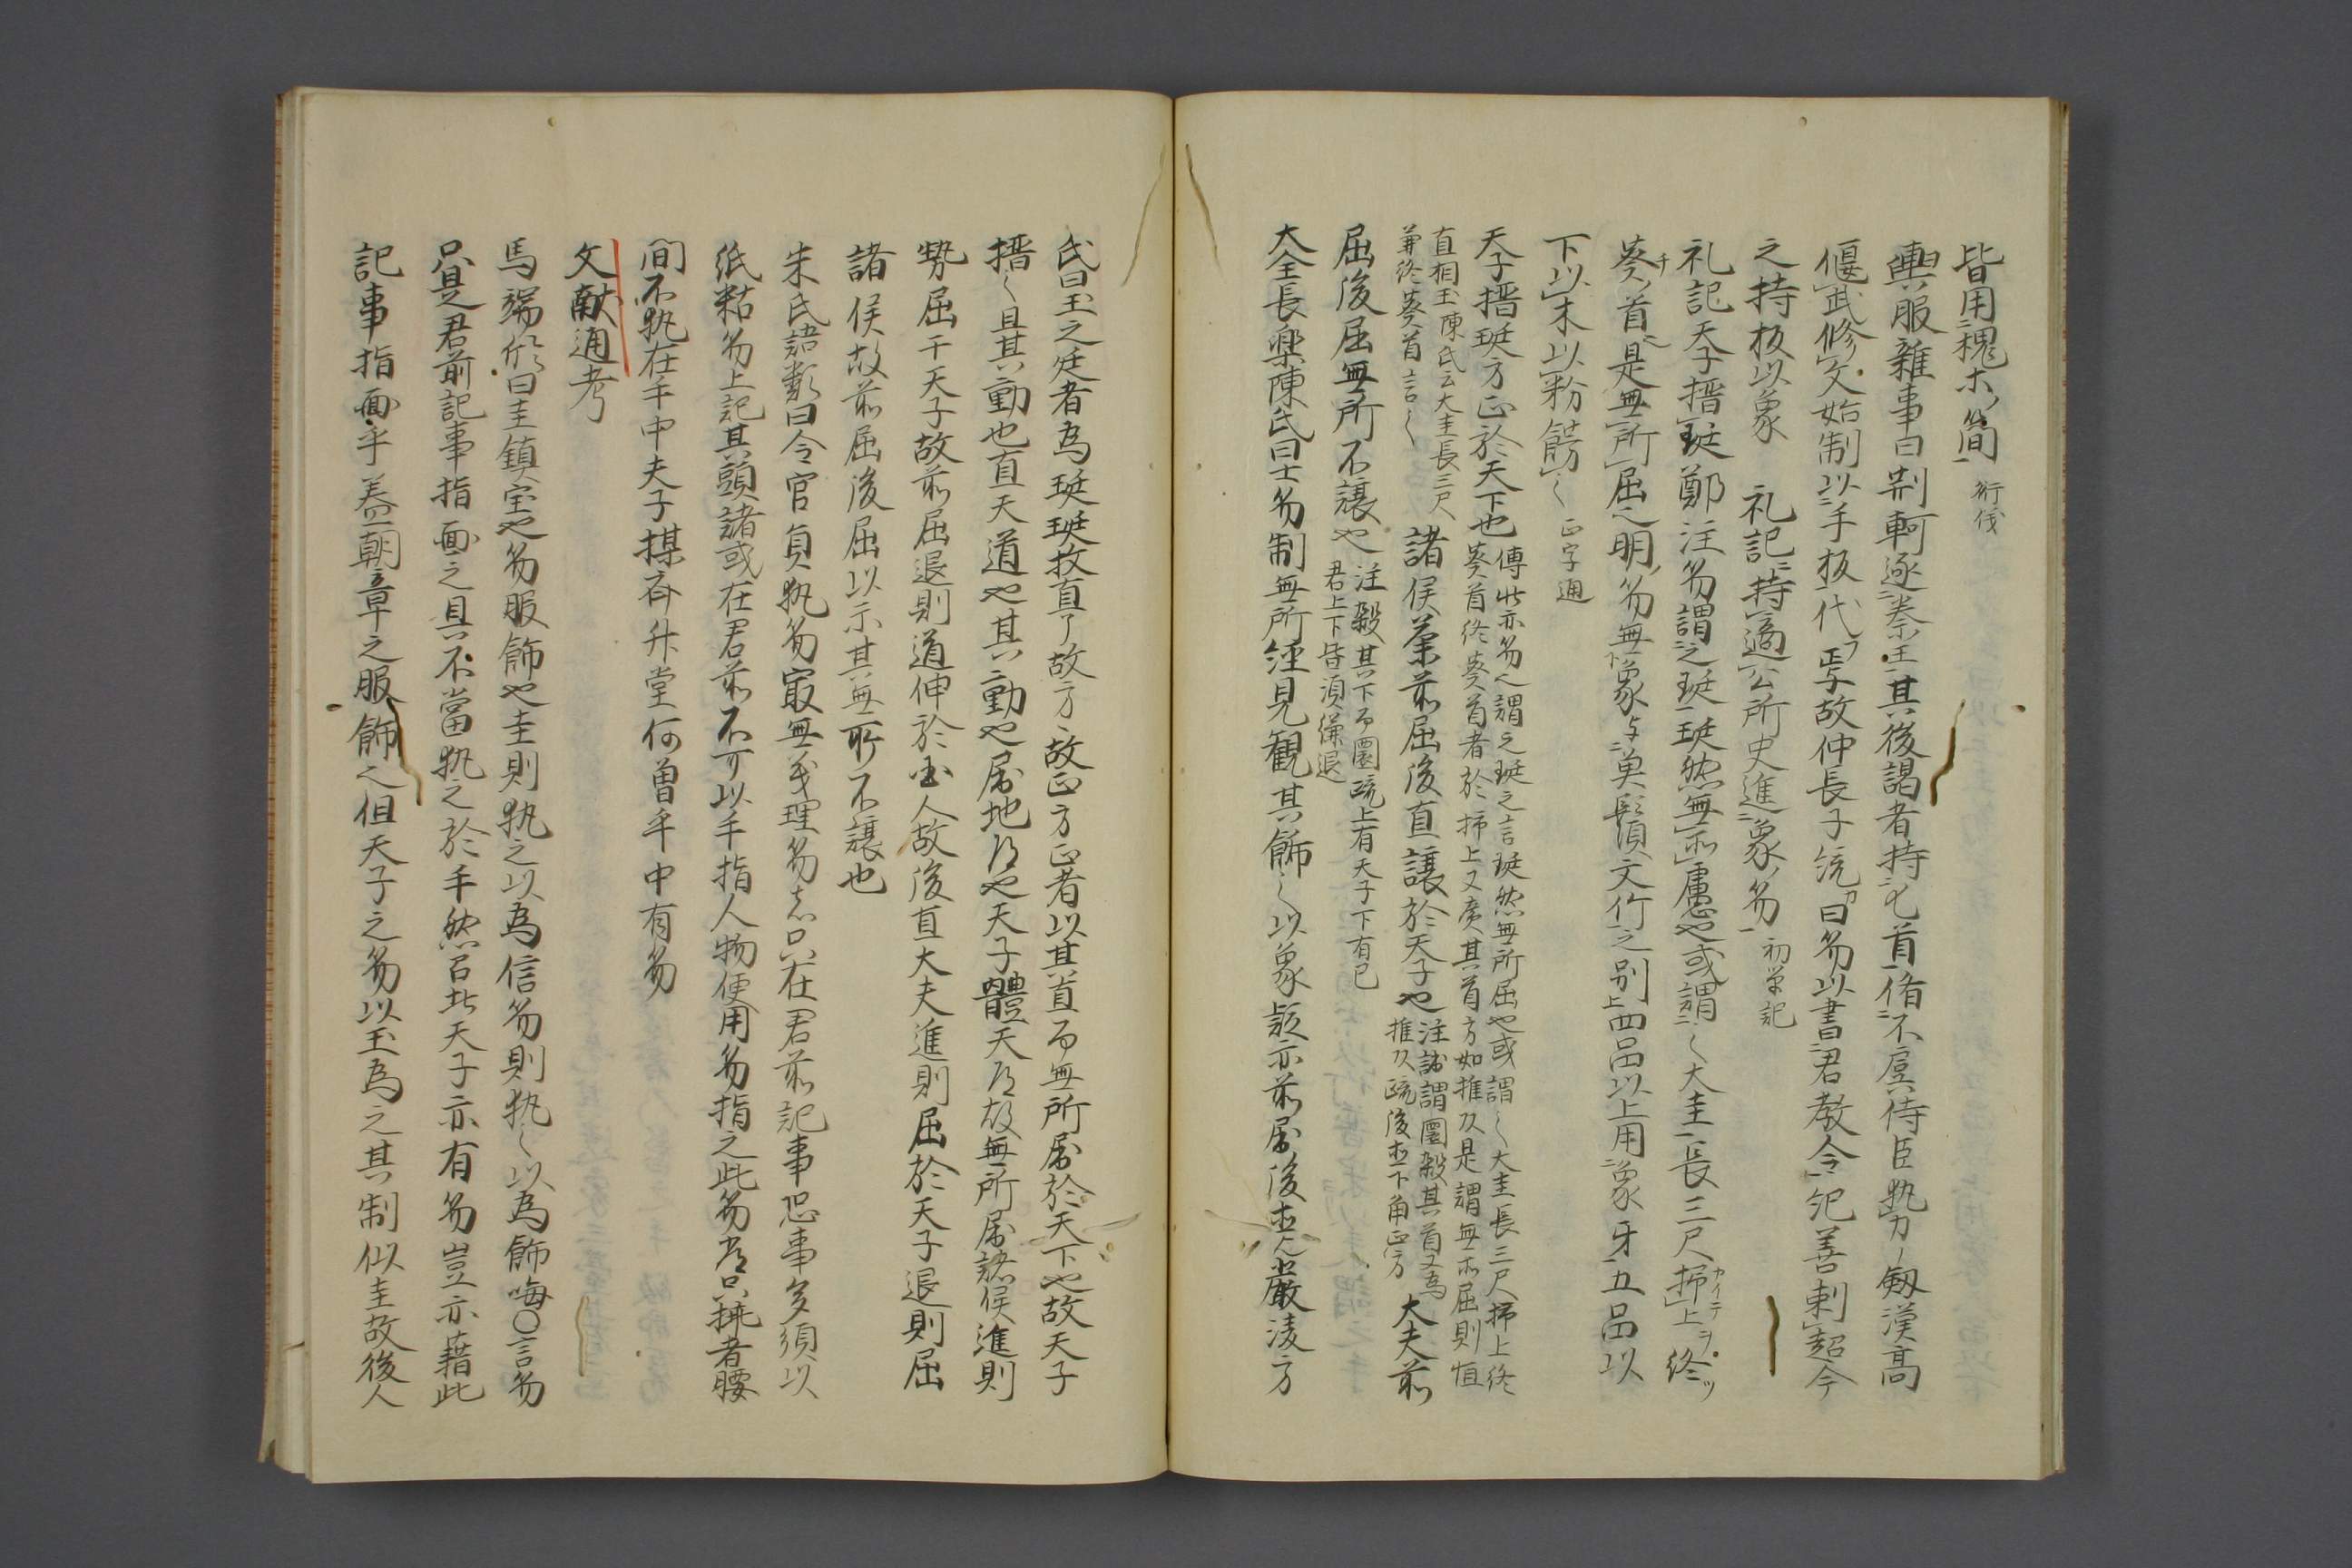 皆用槐木簡 衍伐
輿服雜事曰荊軻逐秦王其後謁者持匕首侍臣執刀釼漢高
偃武修文始制以手板代焉故仲長子统曰笏以書君教令記善刺超今
之持板以象 礼記持適公所史進象笏 初学記
礼記天子搢珽鄭注笏謂之珽珽然無所慮也或謂〻大圭長三尺掃上終
葵首是無所屈之明笏無象与漢鬚文竹之別上四品以上用象牙五品以
下以木以粉餝〻 正字通
天子搢珽方正於天下也 傳此亦笏〻謂之珽之言珽然無所屈也或謂〻大圭長三尺掃上終
葵首終葵首者於掃上又廣其首方如推及是謂無所屈則恒
直相玉陳氏云大圭長三尺
兼終葵首言〻
諸侯荼前屈後直讓於天子也 注諸謂圜殺其首又為
推及疏後直下角正方
大夫前
屈後屈無所不讓也 注殺其下而圜疏上有天子下有己
君上下皆須謙退
大全長樂陳氏曰士笏制無所經見観其飾〻以象疑亦前屈後直凡嚴淩方
氏曰玉之廷者為珽珽故直了故方故正方正者以其直而無所屈於天下也故天子
搢〻且其動也直天道也其動也屈地乃也天子體天乃故無所屈諸侯進則
勢屈于天子故前屈退則道伸於國人故後直大夫進則屈於天子退則屈
諸侯故前屈後屈以示其無所不讓也
朱氏語類曰今官員執笏最無義理笏者只在君前記事恐事多須以
紙粘笏上記其頭諸或在君前不可以手指人物便用笏指之此笏者只挑者腰
間不執在手中夫子摂斉升堂何曽手中有笏
文献通考
馬端似曰圭鎮宝也笏服飾也圭則執之以為信笏則執〻以為飾晦〇言笏
只是君前記事指画之具不當執之於手然古此天子亦有笏豈亦藉此
記事指画乎蓋朝章之服飾之但天子之笏以玉為之其制似圭故後人